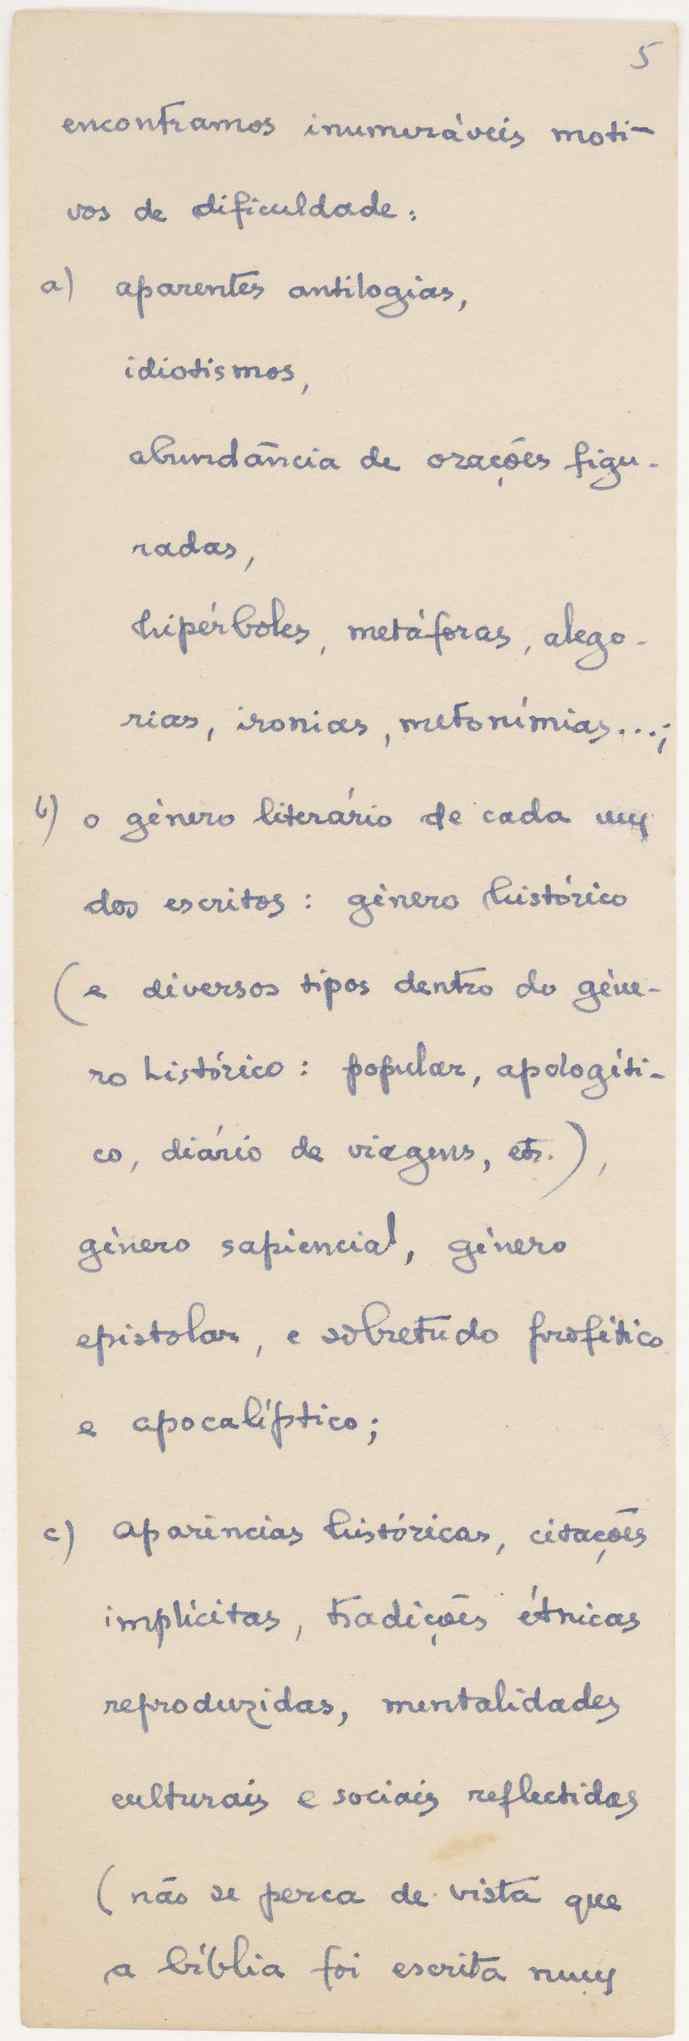 5
encontramos inumeráveis moti-
vos de dificuldade:
a) aparentes antilogias,
idiotismos,
abundância de orações figu-
radas,
hipérboles, metáforas, alego-
rias, ironias, metonímias...;
b) o género literário de cada um
dos escritos: género histórico
(e diversos tipos dentro do géne-
ro histórico: popular, apologéti-
co, diário de viagens, etc.),
género sapiencial, género
epistolar, e sobretudo profético
e apocalíptico;
c) aparências históricas, citações
implícitas, tradições étnicas
reproduzidas, mentalidades
culturais e sociais reflectidas
(não se perca de vista que
a bíblia foi escrita num